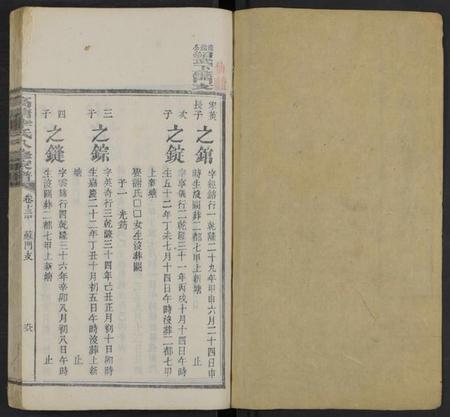 宋英
長子
之錧
字經綸行一乾隆二十九年甲申六月二十四日申
時生沒闕葬二都七甲上新塘
止
次
子
之錠
字享儀行二乾隆三十一年丙戌十月十四日午時
生五十二年丁未七月十四日午時沒葬二都七甲
上新塘
娶謝氏□□女生沒葬闕
子一
止
三
子
之錝
字英奇行三乾隆三十四年己丑正月初十日卯時
生嘉慶二十二年丁丑十月初五日午時沒葬上新
塘
止
四
子
之鏠
字雲錦行四乾隆三十六年辛卯八月初八日午時
生沒闕葬二都七甲上新塘
止
八修家譜
蘇門支